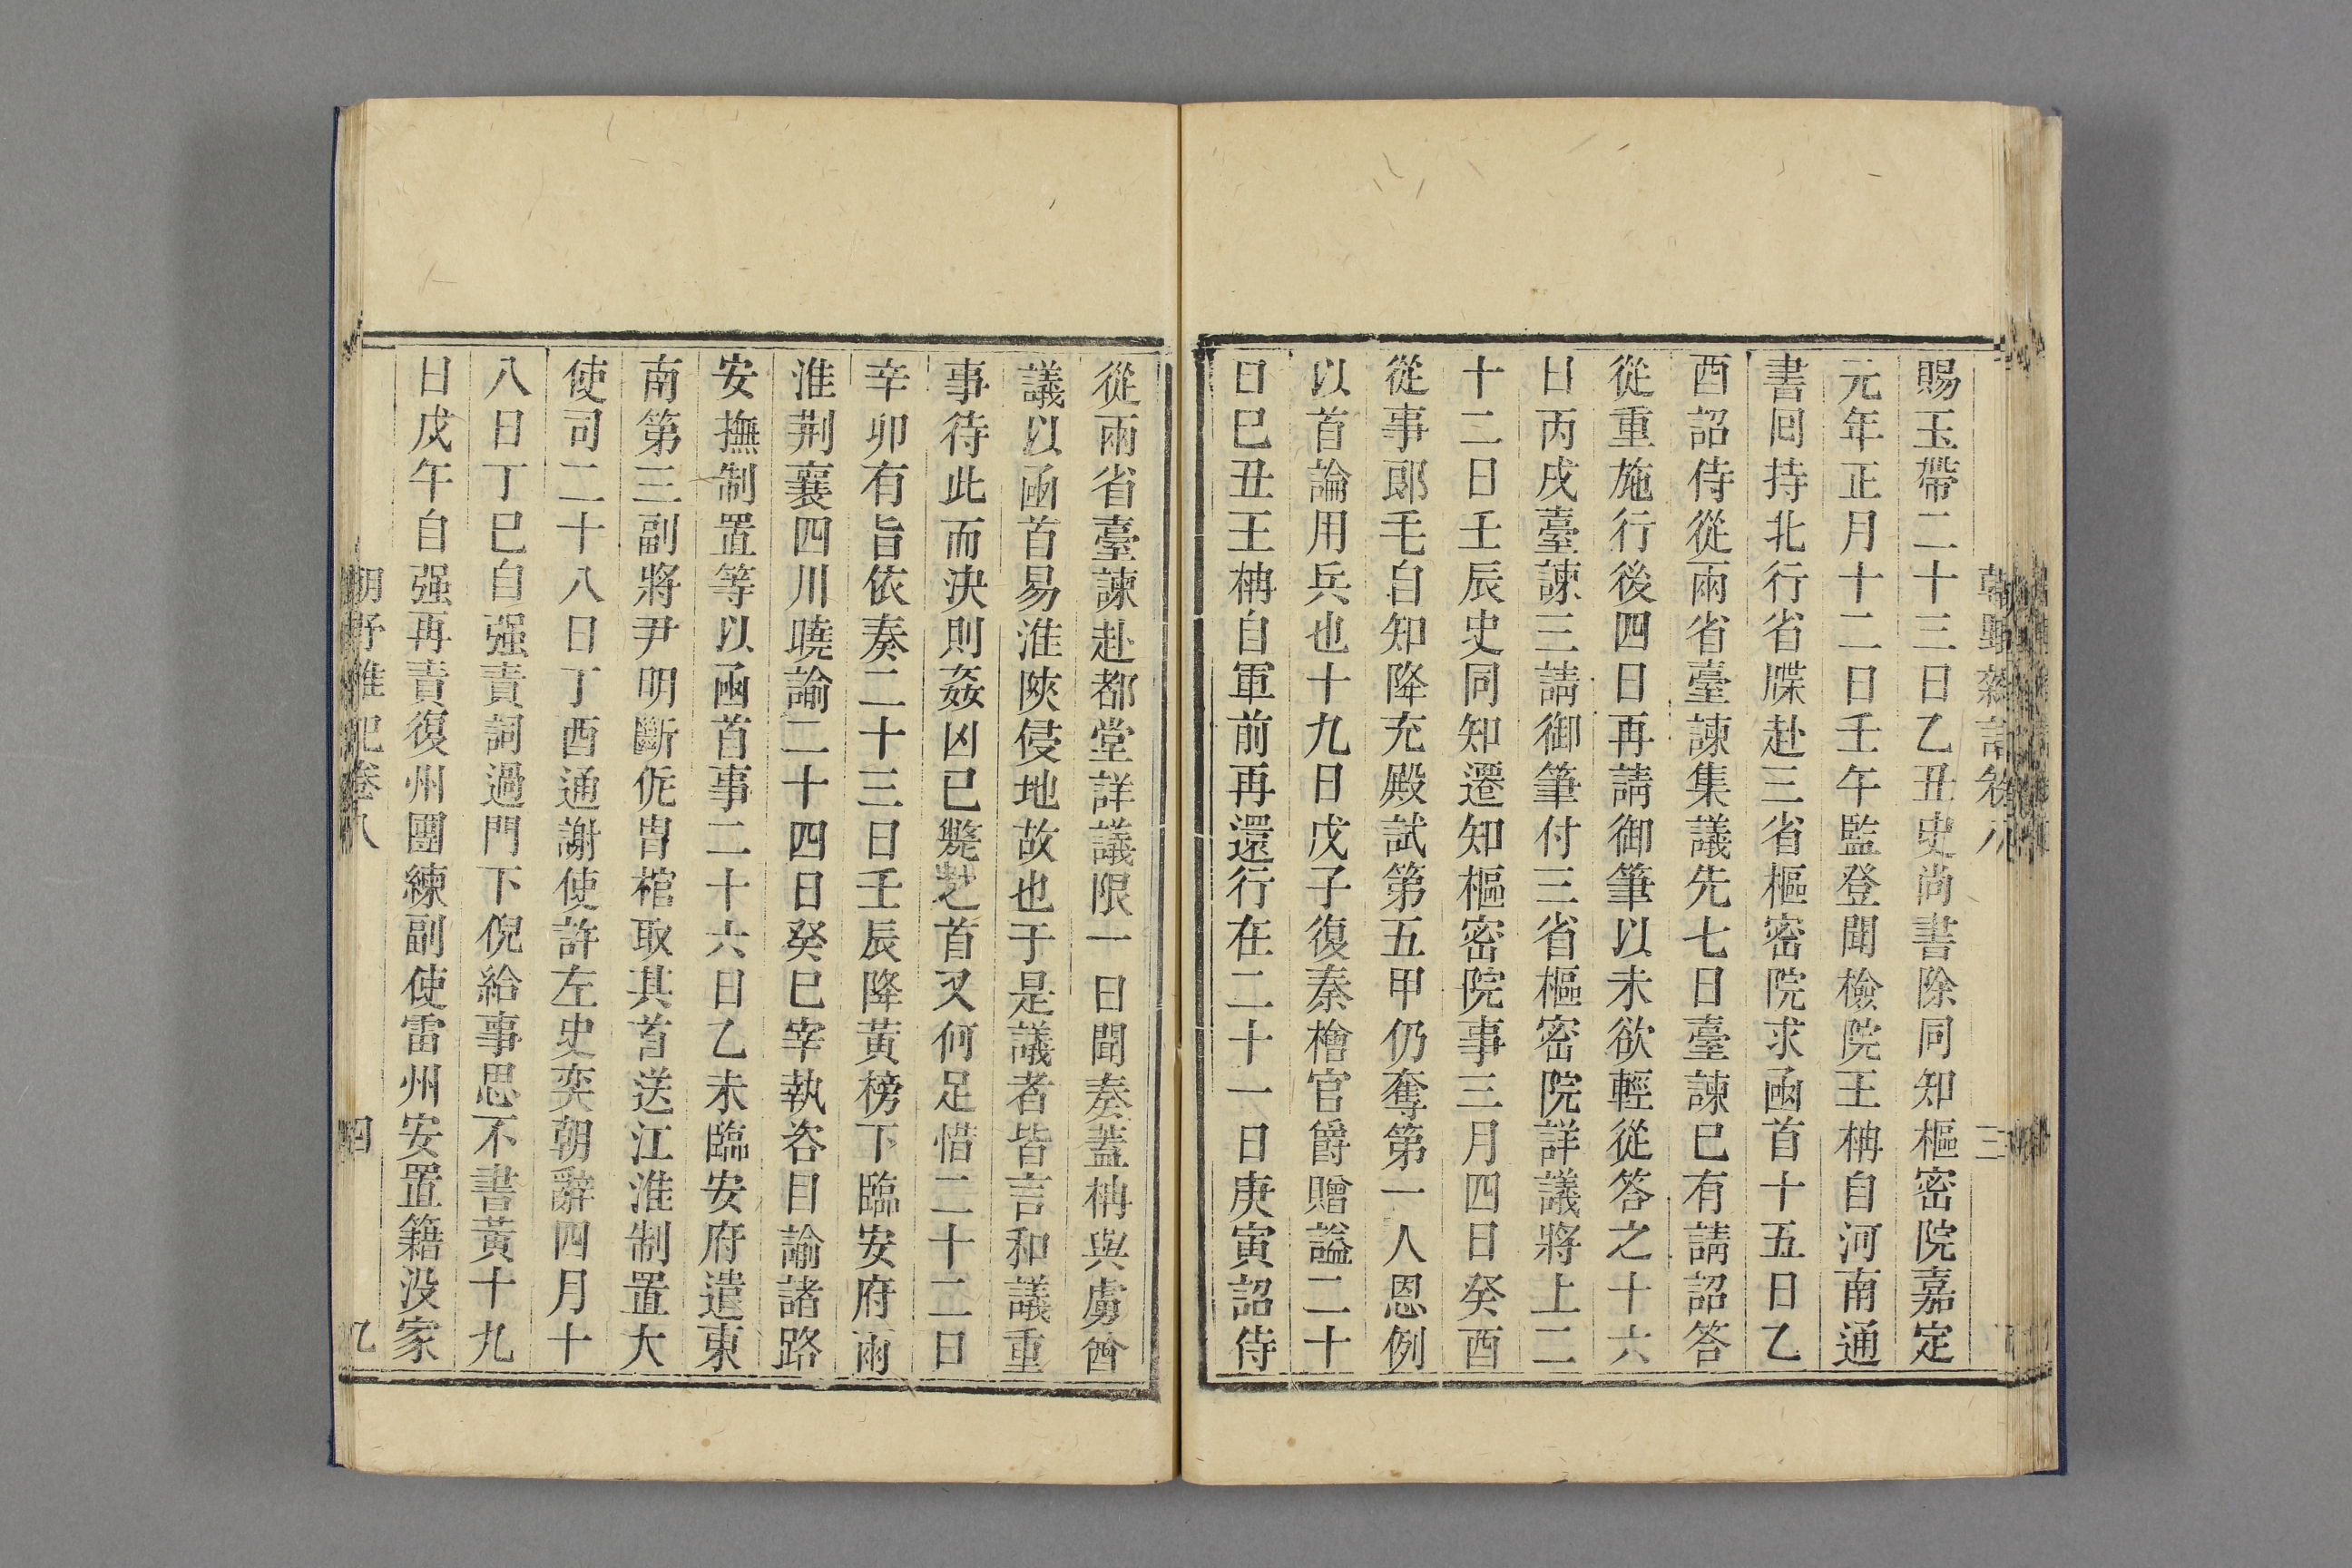 賜玉帶二十三日乙丑史尚書除同知樞密院嘉定
元年正月十二日壬午監登聞檢院王柟自河南通
書回持北行省牒赴三省樞密院求函首十五日乙
酉詔侍從兩省臺諫集議先七日臺諫已有請詔答
從重施行後四日再請御筆以未欲輕從答之十六
日丙戌臺諫三請御筆付三省樞密院詳議將上二
十二日壬辰史同知遷知樞密院事三月四日癸酉
從事郎毛自知降充殿試第五甲仍奪第一人恩例
以首論用兵也十九日戊子復秦檜官爵贈謚二十
日巳丑王柟自軍前再還行在二十一日庚寅詔侍
從兩省臺諫赴都堂詳議限一日聞奏蓋柟與虜酋
議以函首易淮陝侵地故也于是議者皆言和議重
事待此而決則姦凶已斃之首又何足惜二十二日
辛卯有旨依奏二十三日壬辰降黃榜下臨安府兩
淮荆襄四川曉諭二十四日癸巳宰執咨目諭諸路
安撫制置等以函首事二十六日乙未臨安府遣東
南第三副將尹明斷侂冑棺取其首送江淮制置大
使司二十八日丁酉通謝使許左史奕朝辭四月十
八日丁巳自强責詞過門下倪給事思不書黃十九
日戊午自强再責復州團練副使雷州安置籍没家
朝野雜記卷八
四